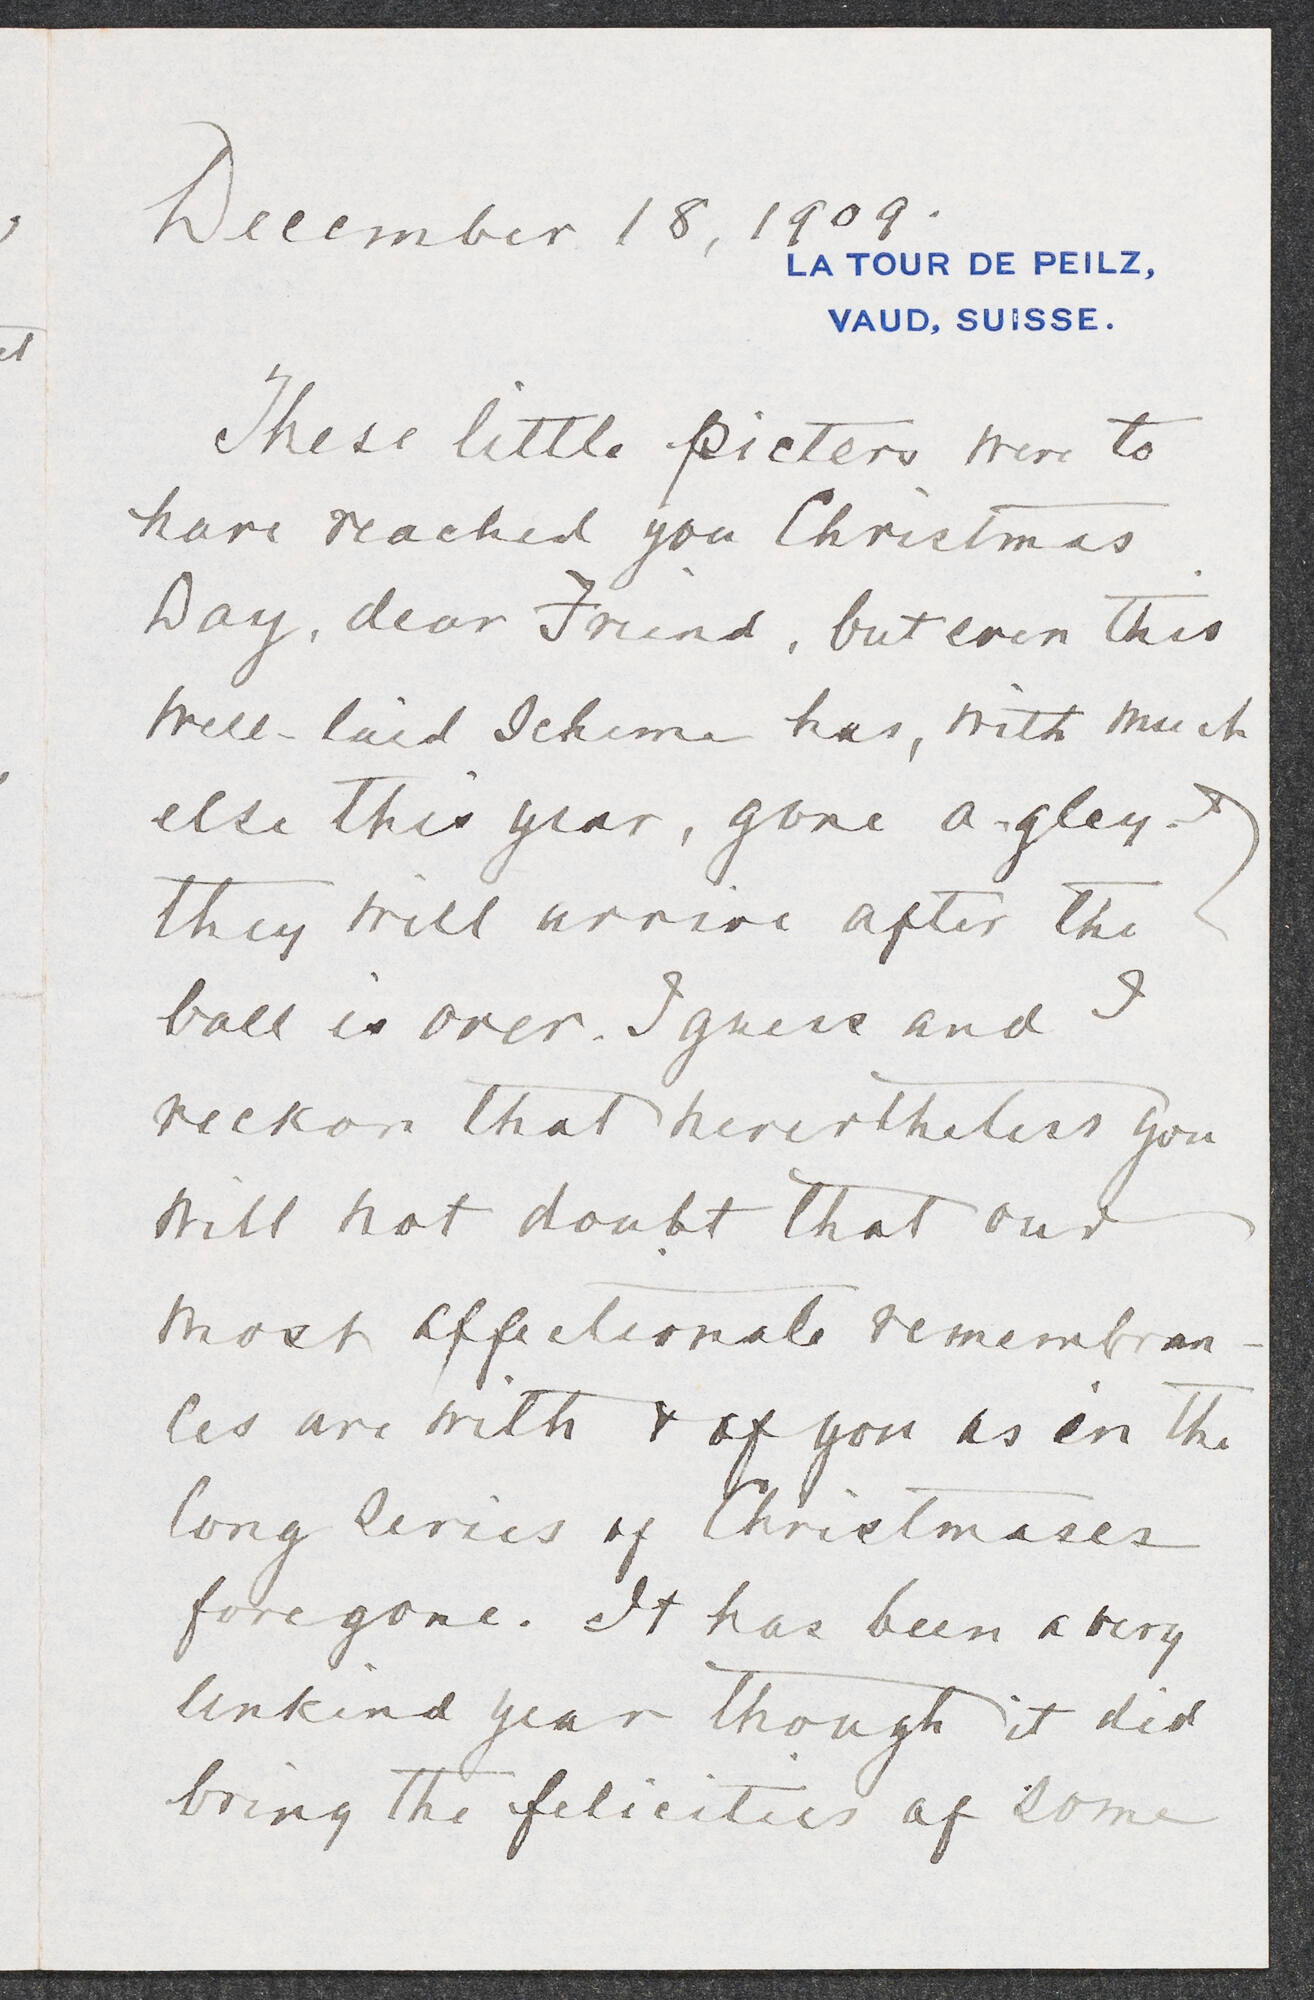 December 18, 1909.
LA TOUR DE PEILZ,
VAUD, SUISSE.
These little picters were to
have reached you Christmas
Day, dear Friend, but even this
well-laid Scheme has, with much
else this year, gone a-gley. &
they will arrive after the
ball is over. I guess and I
reckon that nevertheless you
will not doubt that our
most affectionate remembran-
ces are with & of you as in the
long series of Christmases
foregone. It has been a very
unkind year though it did
bring the felicities of some